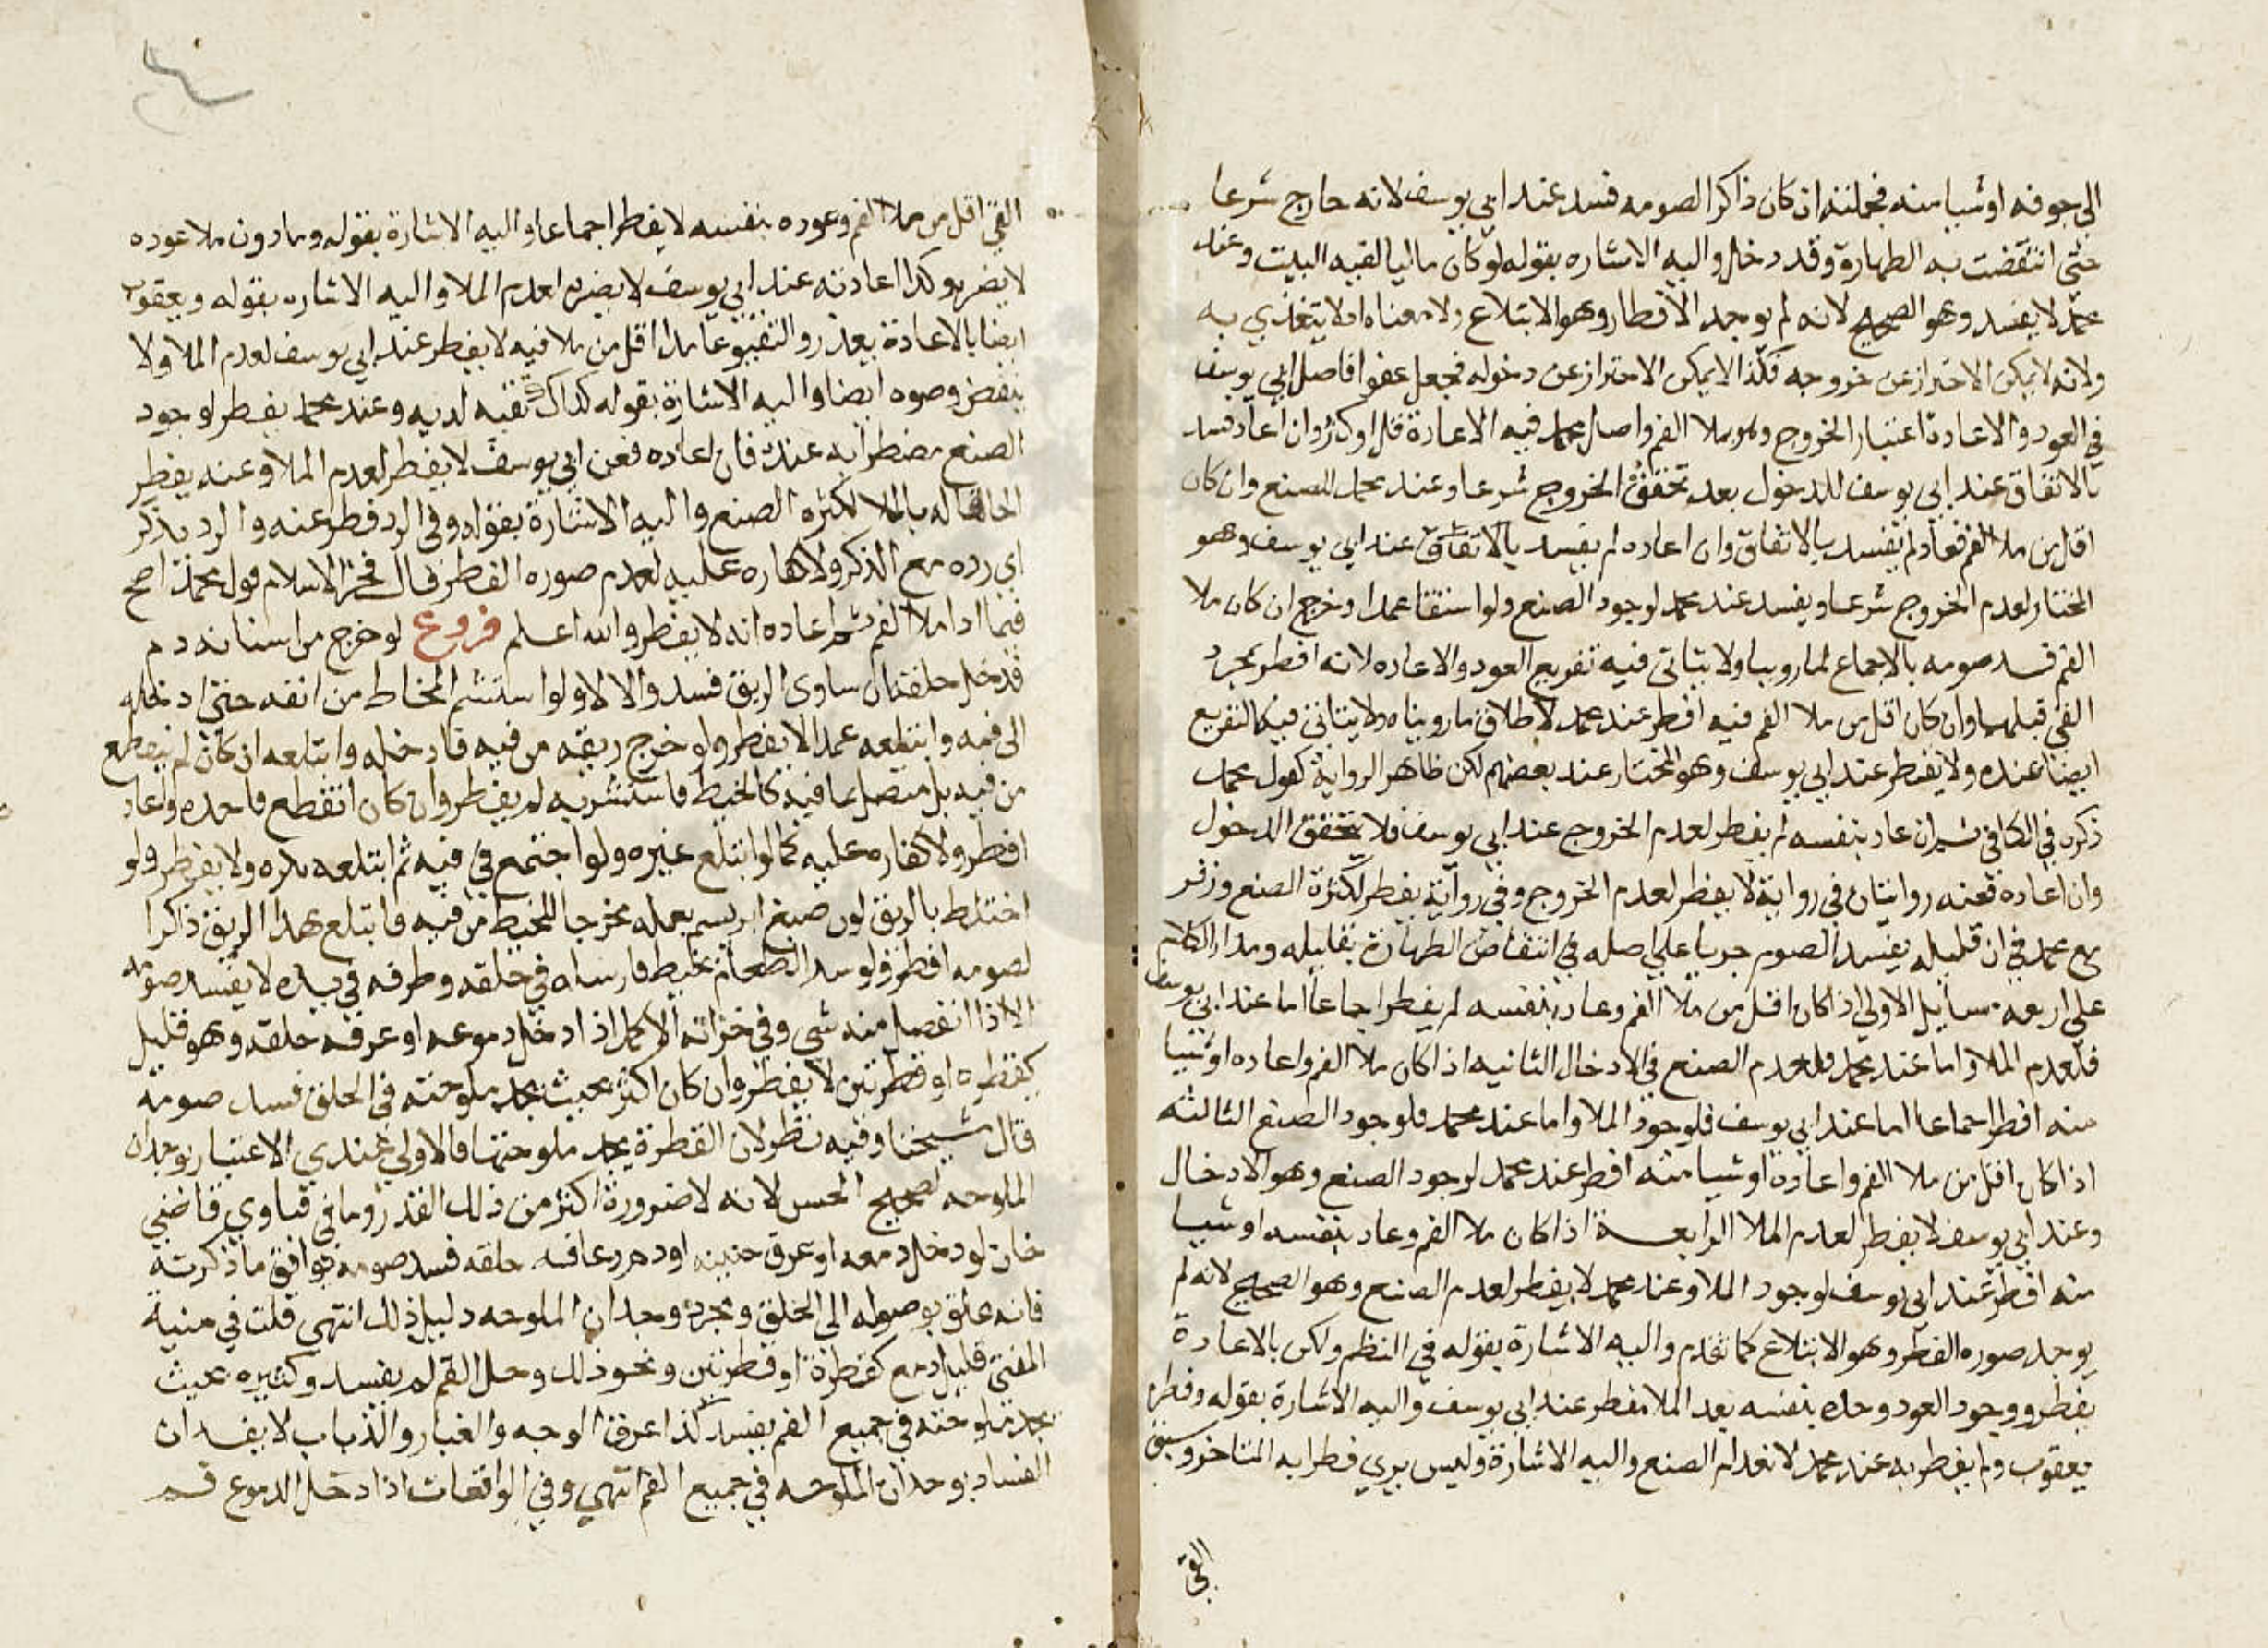 الى جوفه او شيا منه فجملته ان كان ذاكرا لصومه فسد عند ابي يوسف لانه خارج شرعا
حتى انتقضت به الطهارة وقد دخل واليه الاشاره بقوله لو كان ماليا لفيه البيت وعند
محمد لا يفسد وهو الصحيح لانه لم يوجد الافطار وهو الابتلاع ولا معناه اذ لا يتغذي به
ولانه لا يمكن الاحتراز عن خروجه فكذا لا يمكن الاحتراز عن دخوله فجعل عفوا فاصل ابي يوسف
في العود والاعادة اعتبار الخروج وهو ملا الفم واصل محمد فيه الاعادة قل او كثر وان اعاد فسد
بالاتفاق عند ابي يوسف للدخول بعد تحقق الخروج شرعا وعند محمد للصنع وان كان
اقل من ملا الفم فعاد لم يفسد بالاتفاق وان اعاده لم يفسد بالاتفاق عند ابي يوسف وهو
المختار لعدم الخروج شرعا ويفسد عند محمد لوجود الصنع ولو استقا عمدا وخرج ان كان ملا
الفم فسد صومه بالاجماع لما روينا ولا يتاتى فيه تفريع العود والاعاده لانه افطر بمجرد
القي قبلهما وان كان اقل من ملا الفم فيه افطر عند محمد لاطلاق ما رويناه ولا يتاتى فيه التفريع
ايضا عنده ولا يفطر عند ابي يوسف وهو المختار عند بعضهم لكن ظاهر الرواية كقول محمد
ذكره في الكافي ان عاد بنفسه لم يفطر لعدم الخروج عند ابي يوسف فلا يتحقق الدخول
وان اعاده فعنه روايتان في رواية لا يفطر لعدم الخروج وفي رواية يفطر لكثرة الصنع وزفر
مع محمد في ان قليله يفسد الصوم جريا علي اصله في انتقاض الطهارة بقليله ومدار الكلام
علي اربعه مسايل الاولي اذا كان اقل من ملا الفم وعاد بنفسه لم يفطر اجماعا اما عند ابي يوسف
فلعدم الملا واما عند محمد فلعدم الصنع في الادخال الثانيه اذا كان ملا الفم واعاده او شيا
منه افطر اجماعا اما عند ابي يوسف فلوجود الملا واما عند محمد فلوجود الصنع الثالثه
اذا كان اقل من ملا الفم واعاده او شيا منه افطر عند محمد لوجود الصنع وهو الادخال
وعند ابي يوسف لا يفطر لعدم الملا الرابعة اذا كان ملا الفم وعاد بنفسه او شيا
منه افطر عند ابي يوسف لوجود الملا وعند محمد لا يفطر لعدم الصنع وهو الصحيح لانه لم
يوجد صوره الفطر وهو الابتلاع كما تقدم واليه الاشارة بقوله في النظم ولكن بالاعادة
يفطر ووجود العود وحده بنفسه بعد الملا مفطر عند ابي يوسف واليه الاشارة بقوله وفطره
يعقوب ولم يفطر به عند محمد لانعدام الصنع واليه الاشارة وليس يري فطرا به المتاخر وسبق
القي
القي اقل من ملا الفم وعوده بنفسه لا يفطر اجماعا واليه الاشارة بقوله وما دون ملا عوده
لا يضر وكذا اعادته عند ابي يوسف لا يضره لعدم الملا واليه الاشاره بقوله ويعقوب
ايضا بالاعادة يعذر والتقيو عامدا اقل من ملا فيه لا يفطر عند ابي يوسف لعدم الملا ولا
ينقض وضوه ايضا واليه الاشارة بقوله كذاك تقيه لديه وعند محمد يفطر لوجود
الصنع مضطرا به عنده فان اعاده فعن ابي يوسف لا يفطر لعدم الملا وعنه يفطر
الحاقا له بالملا لكثره الصنع واليه الاشارة بقوله وفي الرد فطر عنه والرد يذكر
اي رده مع الذكر ولا كفاره عليه لعدم صوره الفطر قال فخر الاسلام قول محمد اصح
فيما اذا ملا الفم ثم اعاده انه لا يفطر والله اعلم فروع لو خرج من اسنانه دم
فدخل حلقه ان ساوى الريق فسد والا لا ولو استنشم المخاط من انفه حتى ادخله
الى فمه وابتلعه عمدا لا يفطر ولو خرج ريقه من فيه فادخله وابتلعه ان كان لم ينقطع
من فيه بل متصل بما فيه كالخيط فاستشربه لم يفطر وان كان انقطع فاخذه واعاد
افطر ولا كفاره عليه كما لو ابتلع غيره ولو اجتمع في فيه ثم ابتلعه يكره ولا يفطر ولو
اختلط بالريق لون صبغ ابريسم يعمله مخرجا للخيط من فيه فابتلع هذا الريق ذاكرا
لصومه افطر ولو شد الطعام بخيط فارسله في حلقه وطرفه في يده لا يفسد صومه
الا اذا انفصل منه شي وفي خزانة الاكمل اذا دخل دموعه او عرقه حلقه وهو قليل
كقطره او قطرتين لا يفطر وان كان اكثر بحيث يجد ملوحته في الحلق فسد صومه
قال شيخنا وفيه نظر لان القطرة يجد ملوحتها فالاولي عندي الاعتبار بوجدان
الملوحه لصحيح الحس لانه لا ضرورة اكثر من ذلك القدر وما في فتاوي قاضي
خان لو دخل دمعه او عرق جبينه او دم رعافه حلقه فسد صومه يوافق ما ذكرته
فانه علق بوصوله الى الحلق ومجرد وجدان الملوحه دليل ذلك انتهى قلت في منية
المفتي قليل دمع كقطرة او قطرتين ونحو ذلك دخل الفم لم يفسد وكثيره بحيث
يجد ملوحته في جميع الفم يفسد كذا عرق الوجه والغبار والذباب لا يفسدان
الفساد بوجدان الملوحه في جميع الفم انتهى وفي الواقعات اذا دخل الدموع فم